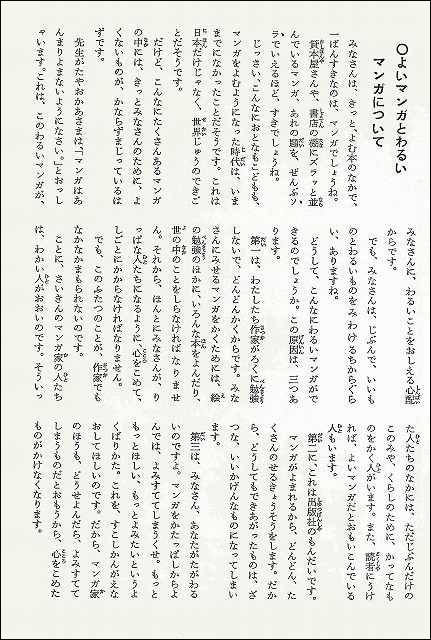 ○よいマンガとわるい
マンガについて
みなさんは、きっと、よむ本のなかで、
一ばんすきなのは、マンガでしょうね。
貸本屋さんや、書店の店にズラッと並
んでいるマンガ、あれの題を、ぜんぶソ
ラでいえるほど、すきでしょうね。
じっさい、こんなにおとなもこどもも、
マンガをよむようになった時代は、いま
までになかったことだそうです。これは
日本だけじゃなく、世界じゅうのできご
とだそうです。
だけど、こんなにたくさんあるマンガ
の中には、きっとみなさんのために、よ
くないものが、かならずまじっているは
ずです。
先生がたやおかあさまは、「マンガはあ
んまりよまないようになさい。」とおっし
ゃいます。これは、このわるいマンガが、
みなさんに、わるいことをおしえる心配
からです。
でも、みなさんは、じぶんで、いいも
のとわるいものをみわけるちからぐら
い、ありますね。
どうして、こんなにわるいマンガがで
きるのでしょうか。この原因は、三つあ
ります。
第一は、わたしたち作家がろくに勉強
しないで、どんどんかくからです。みな
さんにみせるマンガをかくためには、絵
の勉強のほかに、いろんな本をよんだり、
世の中のことをしらなければなりませ
ん。それから、ほんとにみなさんが、り
っぱな人たちになるように、心をこめて、
しごとにかからなければなりません。
でも、このふたつのことが、作家でも
なかなかまもられないのです。
ことに、さいきんのマンガ家の人たち
は、わかい人がおおいのです。そういっ
た人たちのなかには、ただじぶんだけの
このみや、くらしのために、かってなも
のをかく人がいます。また、読者にうけ
れば、よいマンガだとおもいこんでいる
人もいます。
第二に、これは出版社のもんだいです。
マンガがよまれるから、どんどん、た
くさんのせるきょうそうをします。だか
ら、どうしてもできあがったものは、ざ
つな、いいかげんなものになってしまい
ます。
第三は、みなさん、あなたがたがわる
いのですよ。マンガをかたっぱしからよ
んでは、よみすててしまうくせ。もっと
もっとほしい、もっとよみたいというよ
くばりかた。これを、すこしかんがえな
おしてほしいのです。だから、マンガ家
のほうも、どうせよんだら、よみすてて
しまうものだとおもうから、心をこめた
ものがかけなくなります。